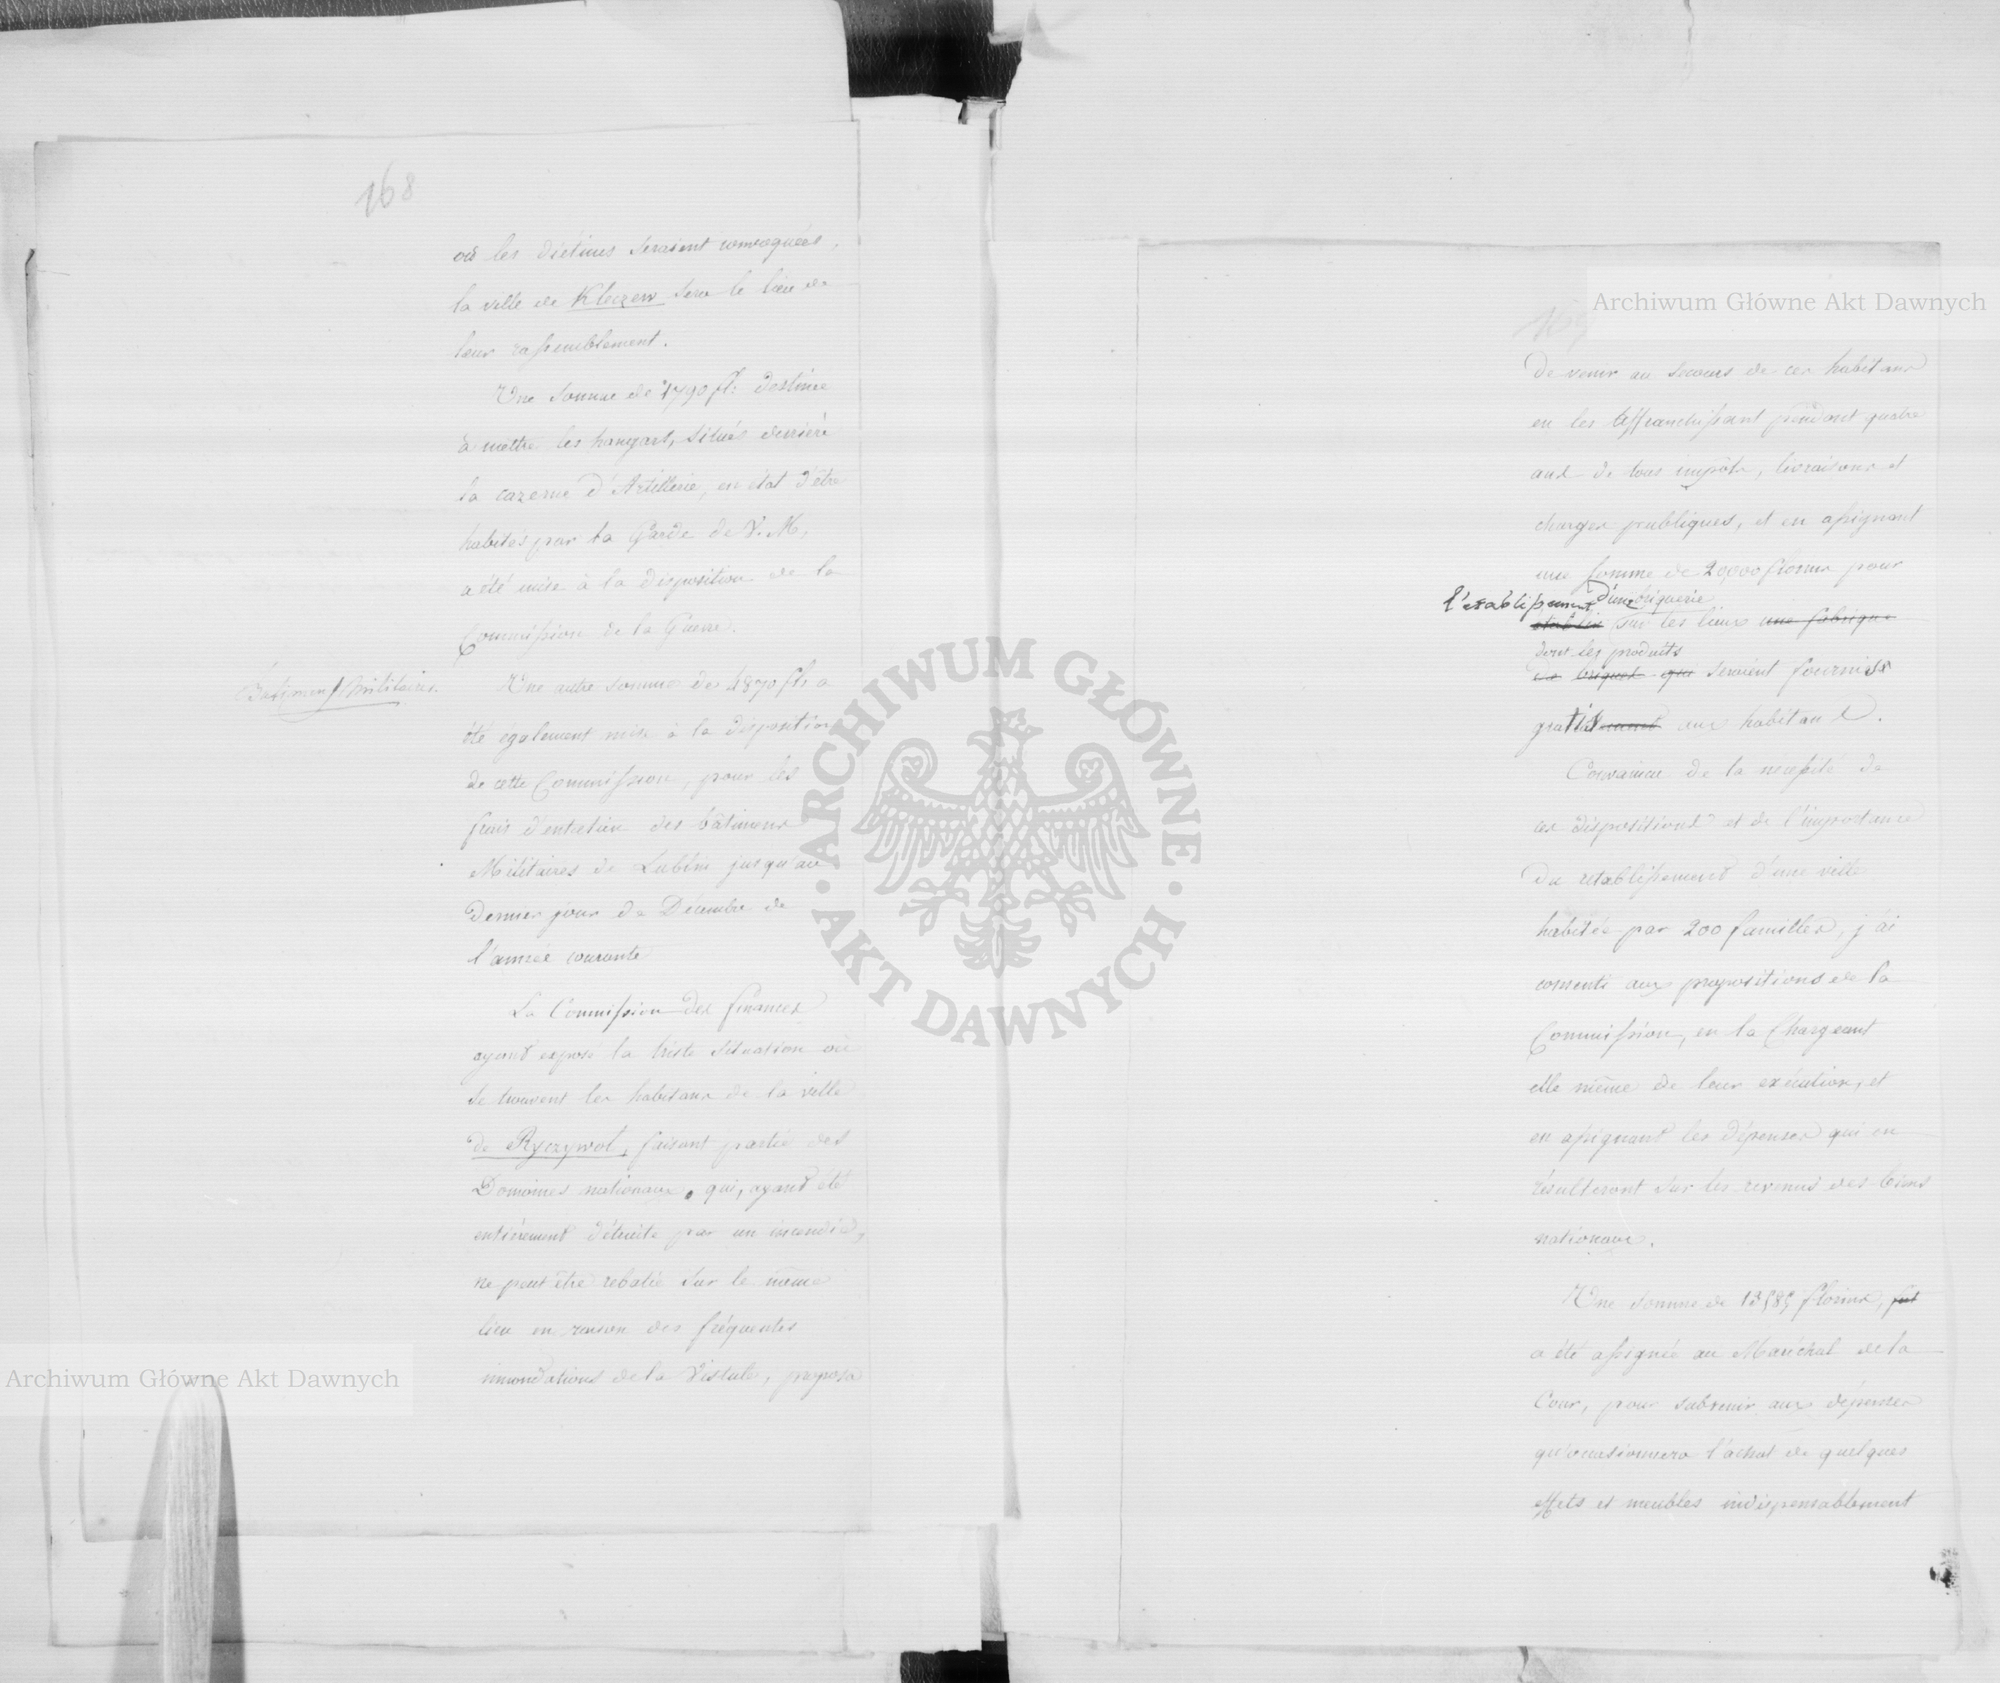 168
où les diétines seraient convoquées,
la ville de Kleczew sera le lieu de
leur rassemblement.
Une somme de 1790 fl: destinée
à mettre les hangars, situés derrière
la cazerne d'Artillerie, en état d'être
habités par la Garde de V. M,
a été mise à la disposition de la
Commission de la Guerre.
Bâtimens militaires.
Une autre somme de 4870 fl: a
été également mise à la disposition
de cette Commission, pour les
frais d'entretien des bâtimens
Militaires de Lublin jusqu'au
dernier jour de Décembre de
l'année courante
La Commission des finances
ayant exposé la triste situation où
se trouvent les habitans de la ville
de Ryczywol, faisant partie des
Domaines nationaux, qui, ayant été
entièrement détruite par un incendie,
ne peut être rebatie sur le même
lieu en raison des fréquentes
innondations de la Vistule, proposa
169
de venir au secours de ces habitans
en les affranchissant pendant quatre
ans de tous impôts, livraisons et
charges publiques, et en assignant
une somme de 20,000 florins pour
l'établissement d'une briqueterie
établir sur les lieux une fabrique
dont les produits
de briques qui seraient fournis
gratis aux habitans.
Convaincu de la nécessité de
ces dispositions et de l'importance
du rétablissement d'une ville
habitée par 200 familles, j'ai
consenti aux propositions de la
Commission, en la Chargeant
elle même de leur exécution, et
en assignant les dépenses qui en
résulteront sur les revenus des biens
nationaux.
Une somme de 13585 florins, fut
a été assignée au Maréchal de la
Cour, pour subvenir aux dépenses
qu'occasionnera l'achat de quelques
effets et meubles indispensablement
Archiwum Główne Akt Dawnych
Archiwum Główne Akt Dawnych
ARCHIWUM GŁÓWNE
AKT DAWNYCH